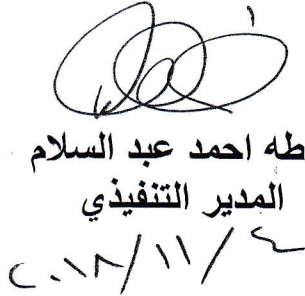 طه احمد عبد السلام
المدير التنفيذي
٢٠١٨/١١/٤